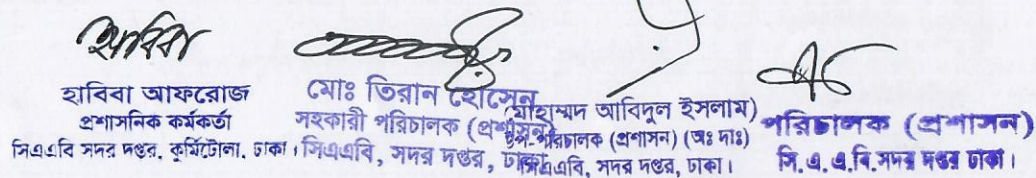 হাবিবা
হাবিবা আফরোজ
প্রশাসনিক কর্মকর্তা
সিএএবি সদর দপ্তর, কুর্মিটোলা, ঢাকা।
মোঃ তিরান হোসেন
সহকারী পরিচালক (প্রশাসন)
সিএএবি, সদর দপ্তর, ঢাকা
(মোহাম্মদ আবিদুল ইসলাম)
উপ-পরিচালক (প্রশাসন) (অঃ দাঃ)
সিএএবি, সদর দপ্তর, ঢাকা।
পরিচালক (প্রশাসন)
সি. এ. এ.বি. সদর দপ্তর ঢাকা।